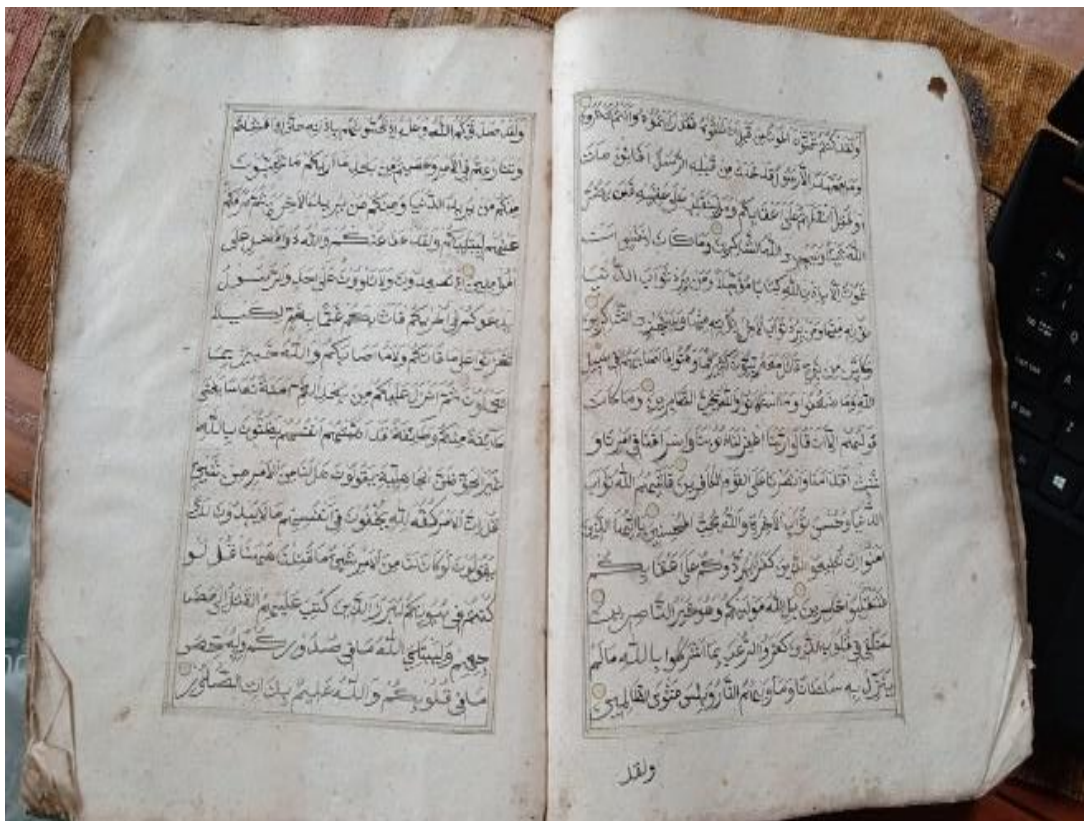 ولقد كنتم تمنون الموت من قبل ان تلقوه فقد رايتموه وانتم تنظرون
وما محمد الا رسول قد خلت من قبله الرسل افائن مات
او قتل انقلبتم على اعقابكم ومن ينقلب على عقبيه فلن يضر
الله شيئا وسيجزي الله الشاكرين وما كان لنفس ان
تموت الا باذن الله كتابا مؤجلا ومن يرد ثواب الدنيا
نؤته منها ومن يرد ثواب الاخرة نؤته منها وسنجزي الشاكرين
وكاين من نبي قاتل معه ربيون كثير فما وهنوا لما اصابهم في سبيل
الله وما ضعفوا وما استكانوا والله يحب الصابرين وما كان
قولهم الا ان قالوا ربنا اغفر لنا ذنوبنا واسرافنا في امرنا و
ثبت اقدامنا وانصرنا على القوم الكافرين فاتيهم الله ثواب
الدنيا وحسن ثواب الاخرة والله يحب المحسنين يا ايها الذين
امنوا ان تطيعوا الذين كفروا يردوكم على اعقابكم
فتنقلبوا خاسرين بل الله موليكم وهو خير الناصرين
سنلقي في قلوب الذين كفروا الرعب بما اشركوا بالله ما لم
ينزل به سلطانا وماويهم النار وبئس مثوى الظالمين
ولقد
ولقد صدقكم الله وعده اذ تحسونهم باذنه حتى اذا فشلتم
وتنازعتم في الامر وعصيتم من بعد ما اريكم ما تحبون
منكم من يريد الدنيا ومنكم من يريد الاخرة ثم صرفكم
عنهم ليبتليكم ولقد عفا عنكم والله ذو فضل على
المؤمنين اذ تصعدون ولا تلوون على احد والرسول
يدعوكم في اخريكم فاثابكم غما بغم لكيلا
تحزنوا على ما فاتكم ولا ما اصابكم والله خبير بما
تعملون ثم انزل عليكم من بعد الغم امنة نعاسا يغشى
طائفة منكم وطائفة قد اهمتهم انفسهم يظنون بالله
غير الحق ظن الجاهلية يقولون هل لنا من الامر من شيئ
قل ان الامر كله لله يخفون في انفسهم ما لا يبدون لك
يقولون لو كان لنا من الامر شيئ ما قتلنا ههنا قل لو
كنتم في بيوتكم لبرز الذين كتب عليهم القتل الى مضا
جعهم وليبتلي الله ما في صدوركم وليمحص
ما في قلوبكم والله عليم بذات الصدور